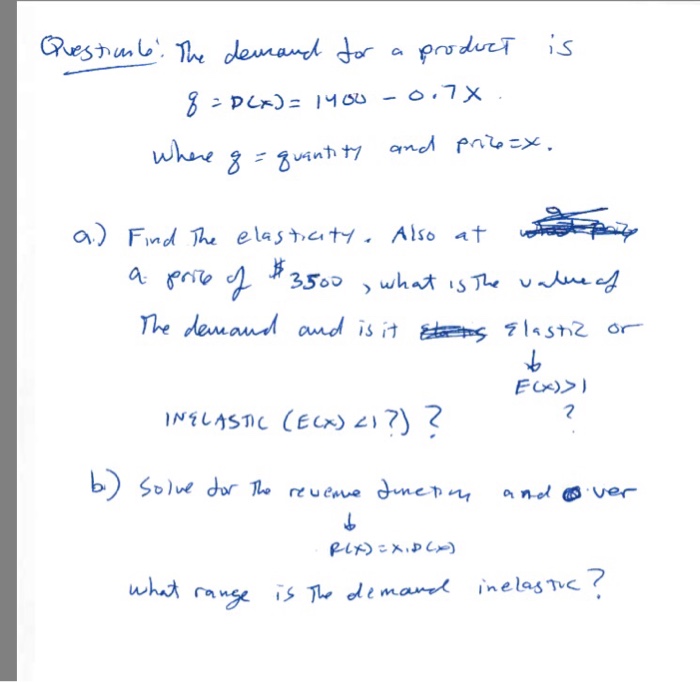 Question 6: The demand for a product is
q = D(x) = 1400 - 0.7x.
where q = quantity and price = x.
a.) Find The elasticity. Also at
a price of $3500, what is The value of
The demand and is it Elastic or
↓
E(x)>1
?
INELASTIC (E(x) <1?) ?
b.) Solve for The revenue function and over
↓
R(x) = x.D(x)
what range is The demand inelastic?